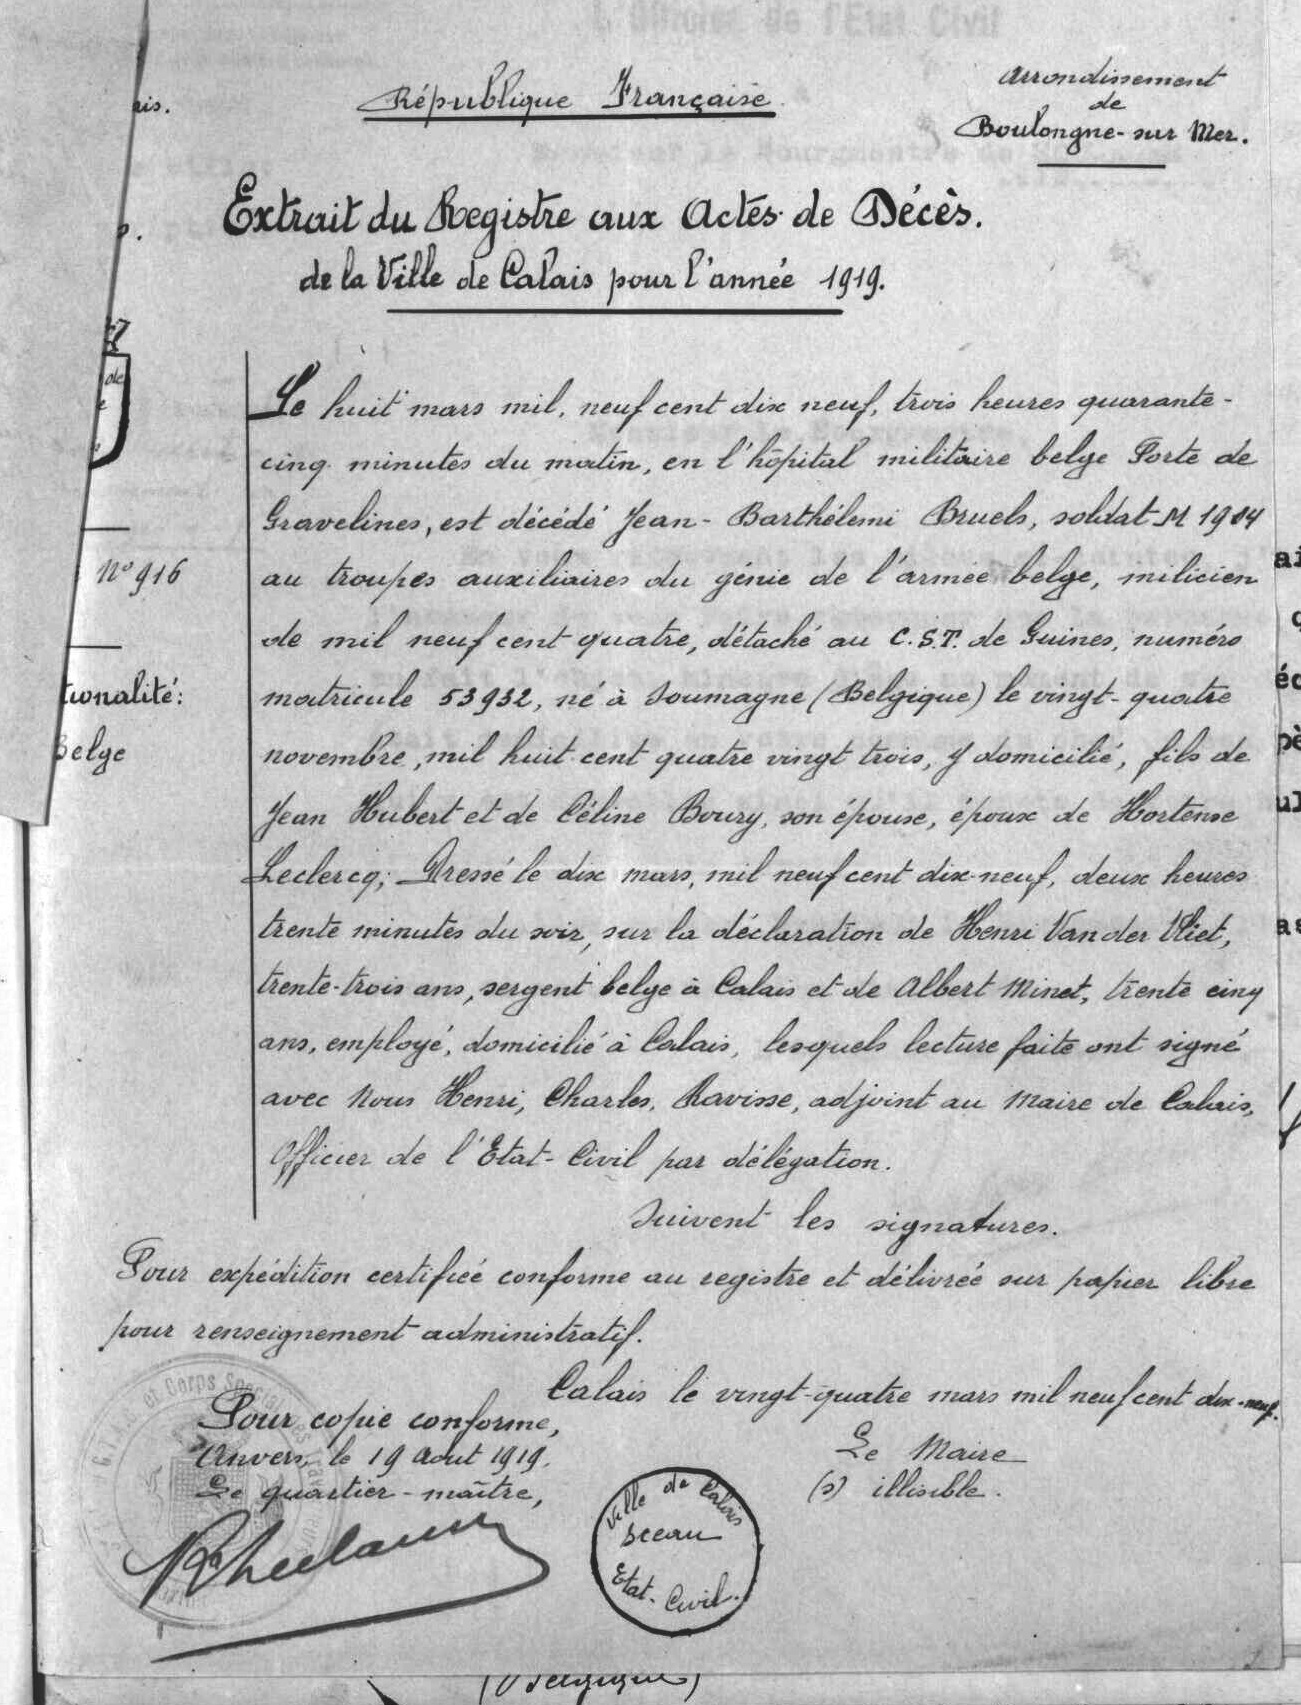 L'Officier de l'Etat Civil
République Française
Arrondissement
de
Boulongne-sur Mer.
ais.
Extrait du Registre aux Actes de Décès.
de la Ville de Calais pour l'année 1919.
de
Le huit mars mil, neuf cent dix neuf, trois heures quarante-
cinq minutes du matin, en l'hôpital militaire belge Porte de
Gravelines, est décédé Jean-Barthélemi Bruels, soldat M 1904
au troupes auxiliaires du génie de l'armée belge, milicien
de mil neuf cent quatre, détaché au C.S.T. de Guines, numéro
matricule 53932, né à Soumagne (Belgique) le vingt-quatre
novembre, mil huit cent quatre vingt trois, y domicilié, fils de
Jean Hubert et de Céline Boury, son épouse, époux de Hortense
Leclercq; Dressé le dix mars, mil neuf cent dix-neuf, deux heures
trente minutes du soir, sur la déclaration de Henri Van der Vliet,
trente-trois ans, sergent belge à Calais et de Albert Minet, trente cinq
ans, employé, domicilié à Calais, lesquels lecture faite ont signé
avec Nous Henri, Charles, Ravisse, adjoint au Maire de Calais,
Officier de l'Etat-Civil par délégation.
Suivent les signatures.
N° 916
tionalité:
Belge
Pour expédition certifiée conforme au registre et délivrée sur papier libre
pour renseignement administratif.
Calais le vingt-quatre mars mil neuf cent dix-neuf.
Le Maire
(s) illisible.
Pour copie conforme,
Anvers, le 19 Aout 1919.
Le quartier-maître,
Ville de Calais
Sceau
Etat-Civil.
et Corps Spécial des Travailleurs
ai
éc
pè
ul
as
(Belgique)